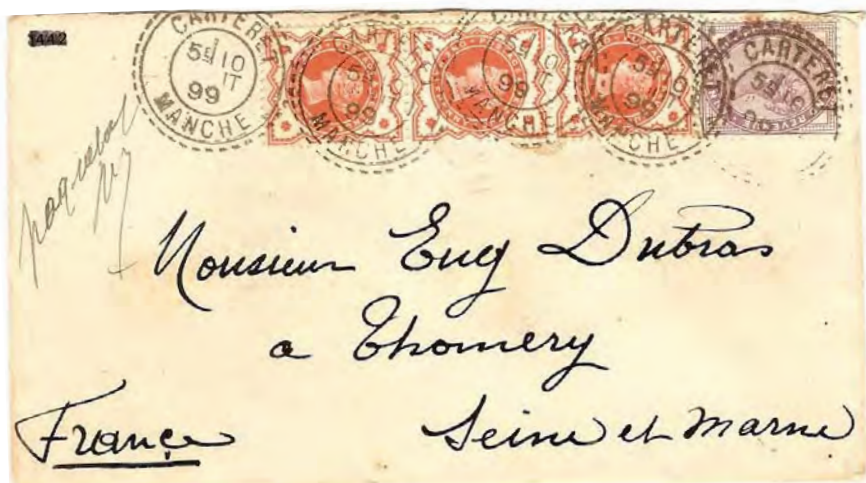 1442
CARTERET
5E 10
IT
99
MANCHE
CARTERET
5E 10
99
MANCHE
CARTERET
5E 10
99
MANCHE
CARTERET
5E 10
IT
99
MANCHE
CARTERET
5E 10
paquebot
Monsieur Eug Dubras
a Thomery
France
Seine et Marne